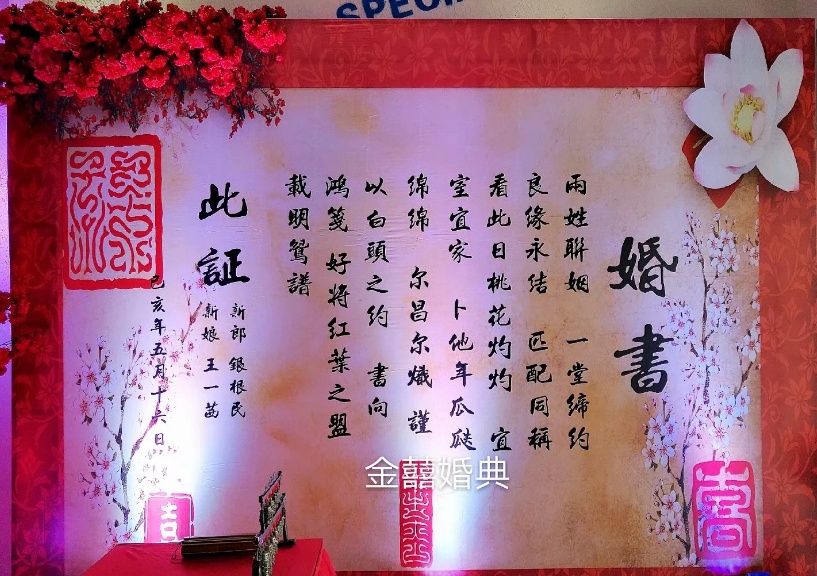 婚書
兩姓聯姻 一堂締約
良緣永結 匹配同稱
看此日桃花灼灼 宜
室宜家 卜他年瓜瓞
綿綿 尔昌尔熾 謹
以白頭之約 書向
鴻箋 好將紅葉之盟
載明鴛譜
此証
新郎 銀根民
新娘 王一苗
己亥年五月十六日
金囍婚典
喜